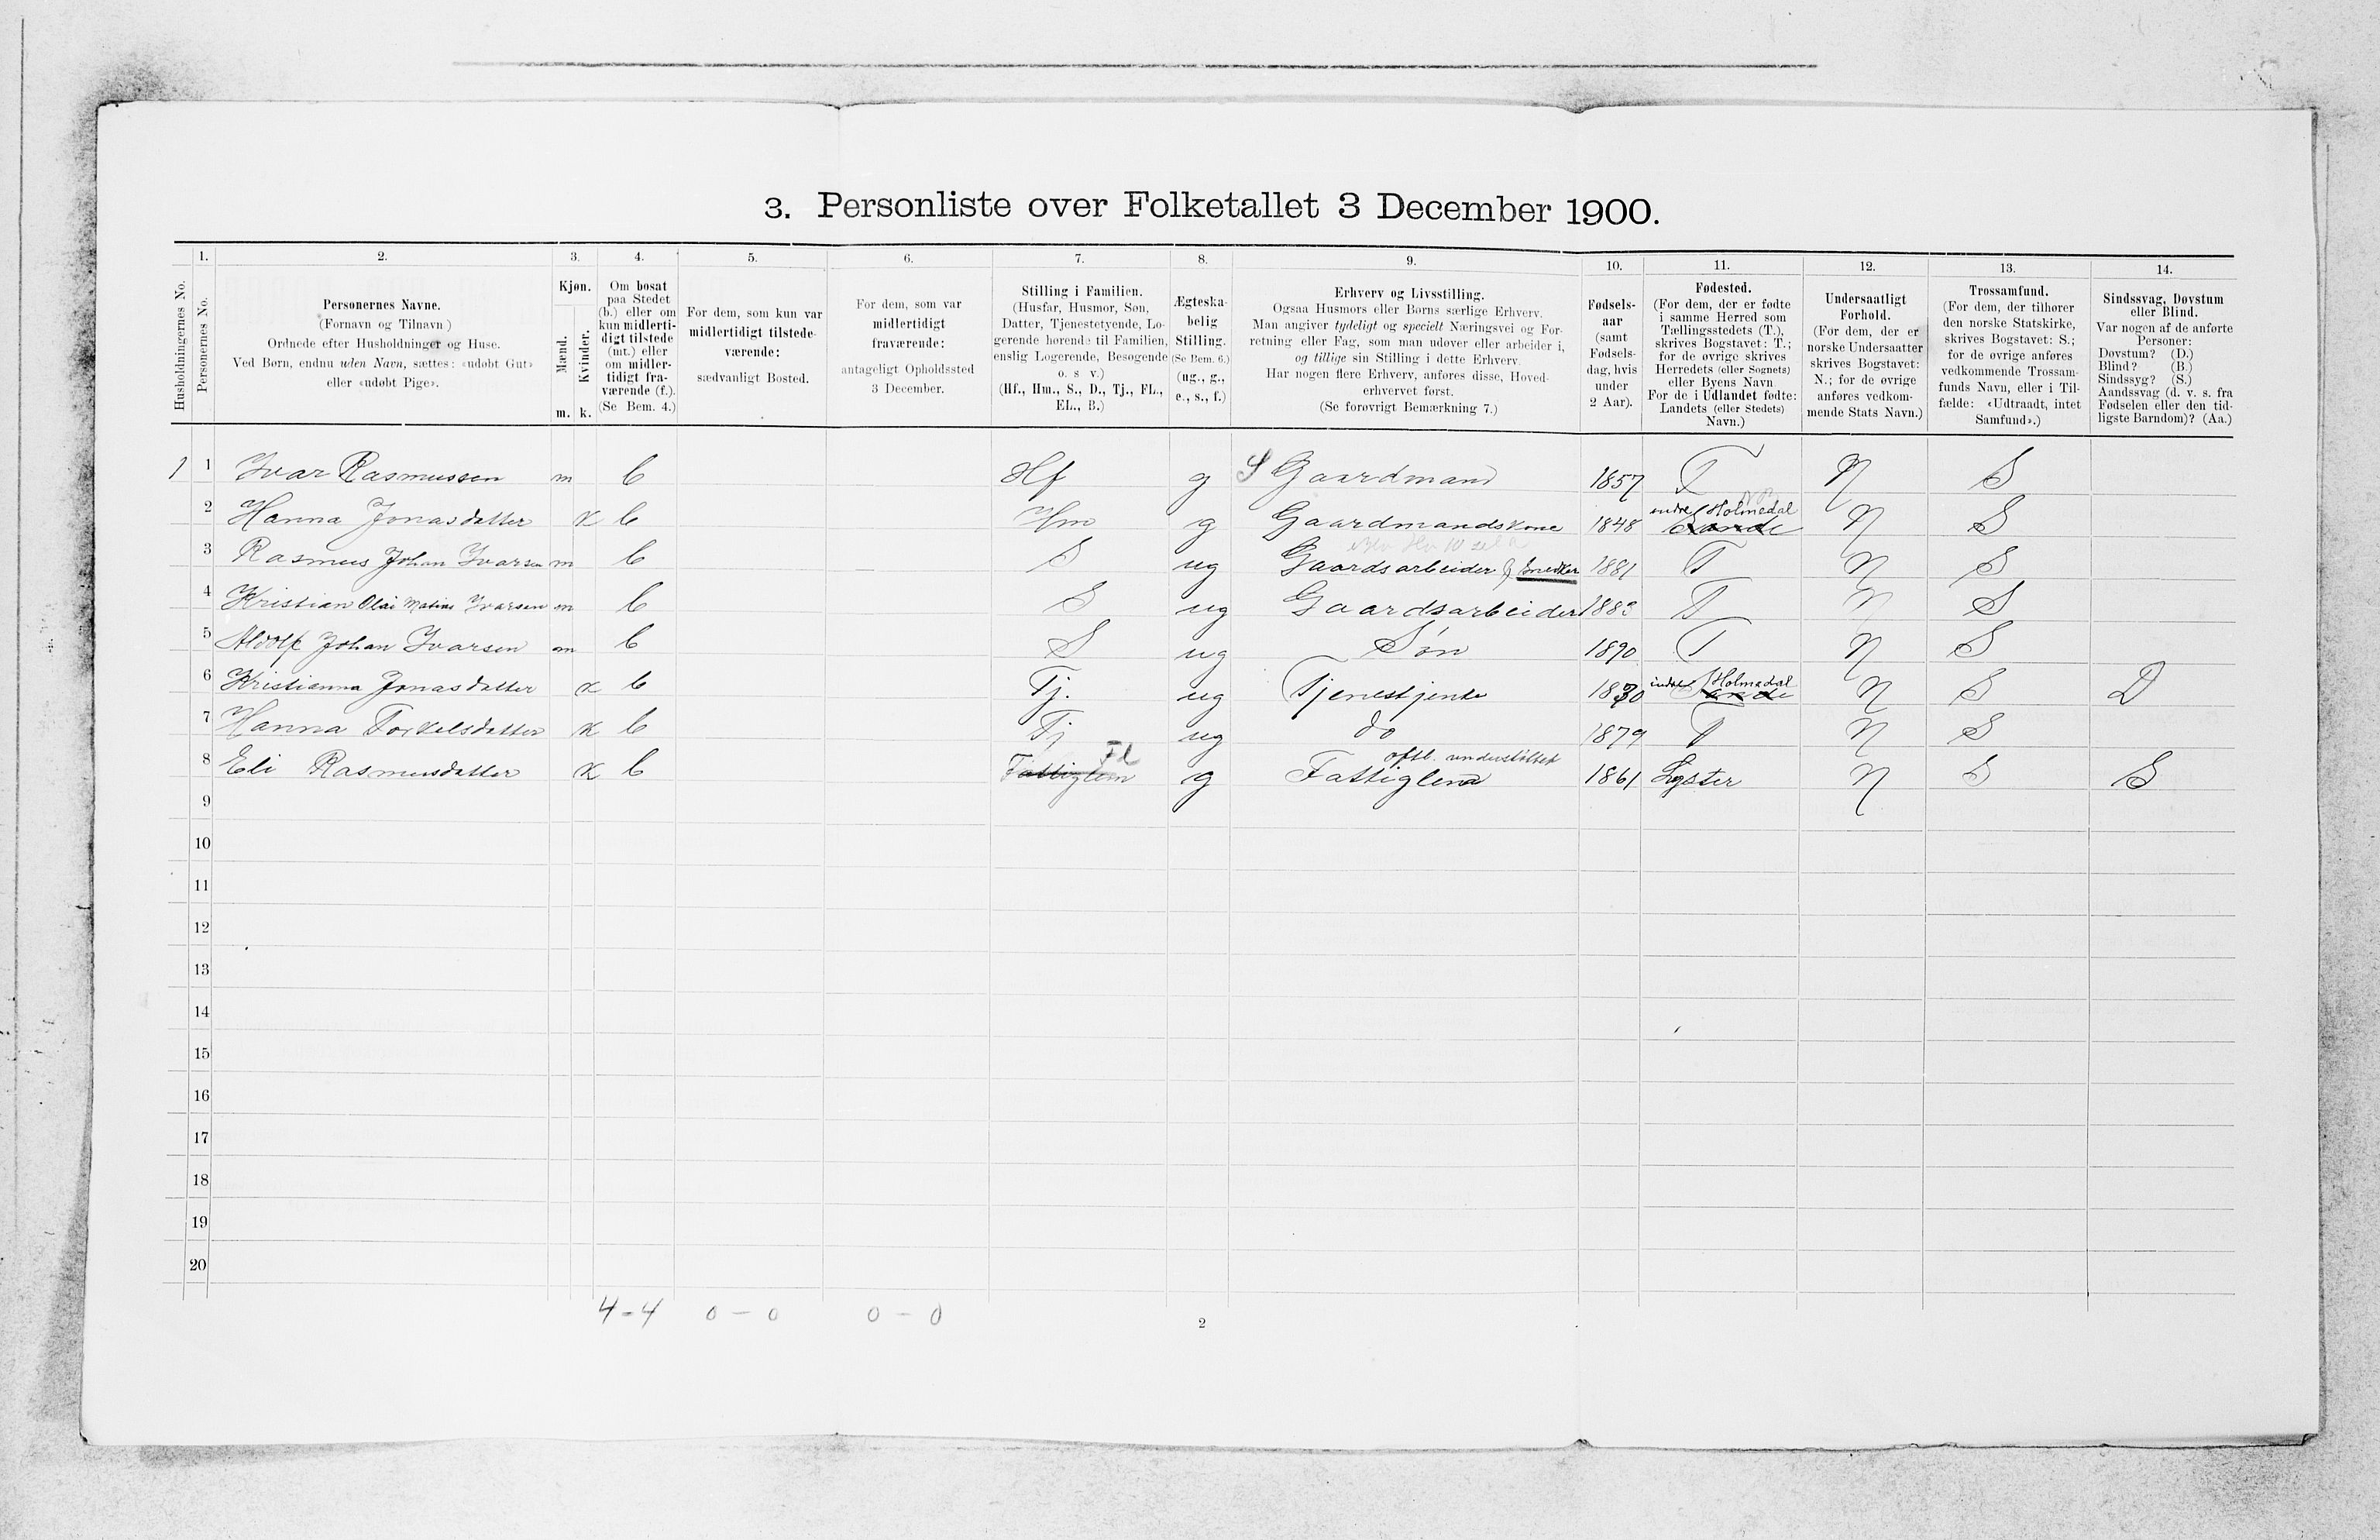 3. Personliste over Folketallet 3 December 1900.
1. 2. 3. 4. 5. 6. 7. 8. 9. 10. 11. 12. 13. 14.
Husholdningernes No.
Personernes No.
Personernes Navne.
(Fornavn og Tilnavn)
Ordnede efter Husholdninger og Huse.
Ved Børn, endnu uden Navn, sættes: «udøbt Gut»
eller «udøbt Pige».
Kjøn.
Mænd.
Kvinder.
m. k.
Om bosat
paa Stedet
(b.) eller om
kun midlerti-
digt tilstede
(mt.) eller
om midler-
tidigt fra-
værende (f.).
(Se Bem. 4.)
For dem, som kun var
midlertidigt tilstede-
værende:
sædvanligt Bosted.
For dem, som var
midlertidigt
fraværende:
antageligt Opholdssted
3 December.
Stilling i Familien.
(Husfar, Husmor, Søn,
Datter, Tjenestetyende, Lo-
gerende hørende til Familien,
enslig Logerende, Besøgende
o. s v.)
(Hf., Hm., S., D., Tj., FL.,
EL., B.)
Ægteska-
belig
Stilling.
(Se Bem. 6.)
(ug., g.,
e., s., f.)
Erhverv og Livsstilling.
Ogsaa Husmors eller Børns særlige Erhverv.
Man angiver tydeligt og specielt Næringsvei og For-
retning eller Fag, som man udøver eller arbeider i,
og tillige sin Stilling i dette Erhverv.
Har nogen flere Erhverv, anføres disse, Hoved-
erhvervet først.
(Se forøvrigt Bemærkning 7.)
Fødsels-
aar
(samt
Fødsels-
dag, hvis
under
2 Aar).
Fødested.
(For dem, der er fødte
i samme Herred som
Tællingsstedets (T.),
skrives Bogstavet: T.;
for de øvrige skrives
Herredets (eller Sognets)
eller Byens Navn
For de i Udlandet fødte:
Landets (eller Stedets)
Navn.)
Undersaatligt
Forhold.
(For dem, der er
norske Undersaatter
skrives Bogstavet:
N.; for de øvrige
anføres vedkom-
mende Stats Navn.)
Trossamfund.
(For dem, der tilhører
den norske Statskirke,
skrives Bogstavet: S.;
for de øvrige anføres
vedkommende Trossam-
funds Navn, eller i Til-
fælde: «Udtraadt, intet
Samfund».)
Sindssvag, Døvstum
eller Blind.
Var nogen af de anførte
Personer:
Døvstum? (D.)
Blind? (B.)
Sindssyg? (S.)
Aandssvag (d. v. s. fra
Fødselen eller den tid-
ligste Barndom)? (Aa.)
1 1 Ivar Rasmussen m b Hf g S Gaardmand 1857 T N S
2 Hanna Jonasdatter k b Hm g Gaardmandskone 1848 indre Holmedal Sande N S
3 Rasmus Johan Ivarsen m b S ug Gaardsarbeider & Snedker 1881 T N S
4 Kristian Olai Matias Ivarsen m b S ug Gaardsarbeider 1883 T N S
5 Aldolf Johan Ivarsen m b S ug Søn 1890 T N S
6 Kristianna Jonasdatter k b Tj. ug Tjenestjente 1830 indre Holmedal Sande N S D
7 Hanna Torkelsdatter k b Tj ug do 1879 T N S
8 Eli Rasmusdatter k b Fattiglem Fl g Fattiglem offtl. understøttet 1861 Lyster N S S
9
10
11
12
13
14
15
16
17
18
19
20
4 - 4 0 - 0 0 - 0
2